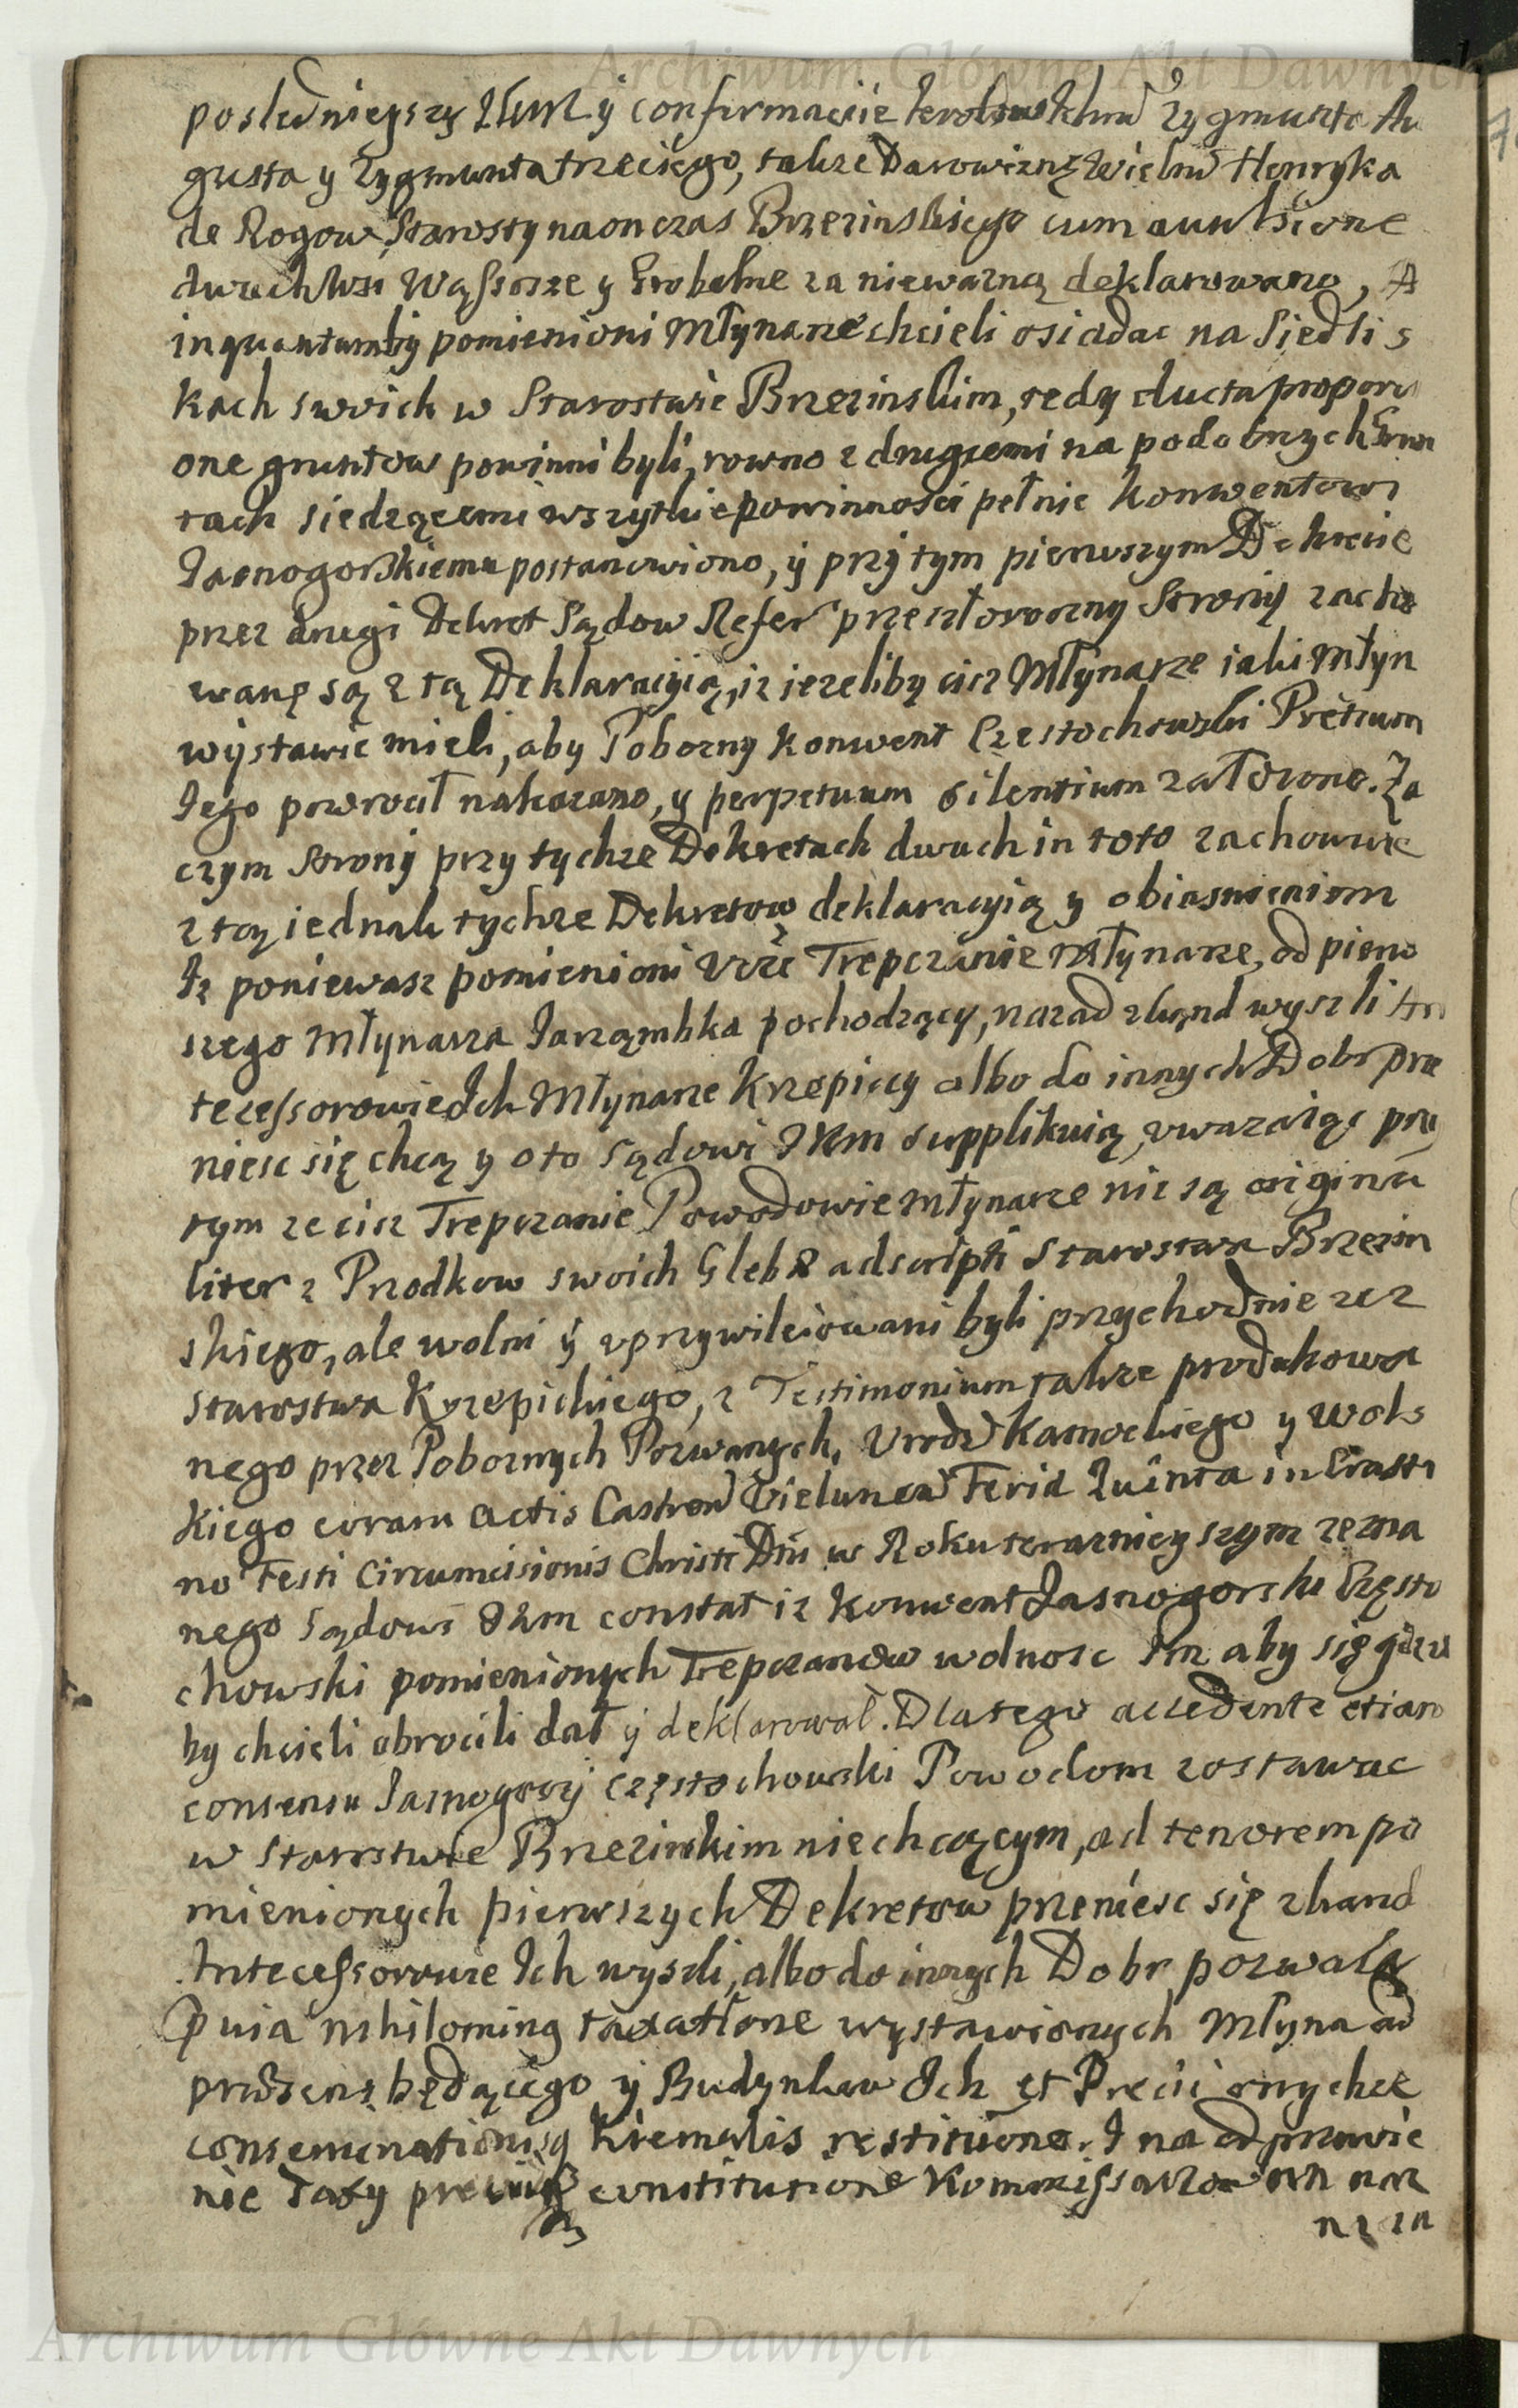 Archiwum Główne Akt Dawnych
posledniejszy y confirmacije Zygmunta Au
gusta y Zygmunta trzeciego, takze Darowiznę Wielm Henryka
de Rogow, Starosty na on czas Brzezinskiego cum avulsione
dwuch Wsi Wąssosze y Grobelne za niewazną deklarowano, A
inquantumby pomienioni Młynarze chcieli osiadac na Siedlis
kach swoich w Starostwie Brzezinskim, tedy ducta proporti
one gruntow powinni byli, rowno z drugiemi na podobnych Grun
tach siedzącemi wszytkie powinnosci pełnic Konwentowi
Jasnogorskiemu postanowiono, ij przy tym pierwszym Dekrecie
przez drugi Dekret Sądow Refer przeszłoroczny Strony zacho
wanę są z tą Deklaracyią, iz iezeliby ciz Młynarze iaki Młyn
wystawic mieli, aby Pobozny Konwent Częstochowski Pretium
Jego powrocił nakazano, y perpetuum silentium załozono. Za
czym Strony przy tychze Dekretach dwuch in toto zachowuie
z tą iednak tychze Dekretow deklaracyią y obiasnieniem
Iz poniewasz pomienioni Trepczanie Młynarze, od pierw
szego Młynarza Jarząmbka pochodzący, nazad zkąnd wyszli An
tecessorowie Ich Młynarze Krzepiccy albo do innych Dobr prze
niesc się chcą y o to Sądowi JKM supplikuią, uwazaiąc przy
tym ze ciz Trepczanie Powodowie Młynarze nie są origina
liter z Przodkow swoich Glebæ adscripti Starostwa Brzezin
skiego, ale wolni ij uprzywileiowani byli przychodnie zez
Starostwa Krzepickiego, z Testimonium takze produkowa
nego przez Poboznych Pozwanych, Urodz Kamockiego y Wols
kiego coram Actis Castren Vielunen Feria Quinta in Crasti
no Festi Circumcisionis Christi Dni w Roku teraznieyszym zezna
nego Sądowi JKM constat iz Konwent Jasnogorski Często
chowski pomienionych Trepczanow wolnosc Im aby się gdzie
by chcieli obrocili dał ij deklarował. Dlatego accedente etiam
consensu Jasnogory Częstochowski Powodom zostawac
w Starostwie Brzezinskim niechcącym, ad tenorem po
mienionych pierwszych Dekretow przeniesc się zkand
Antecessorowie Ich wyszli, albo do innych Dobr pozwala
prævia nihilominq taxatione wystawionych Młyna ad
præsens będącego y Budynkow Ich et Precii onychze
consemenationisq hiemalis restitutione. I na odprawie
nie Taxy constitutione Kommissarzow
Archiwum Główne Akt Dawnych